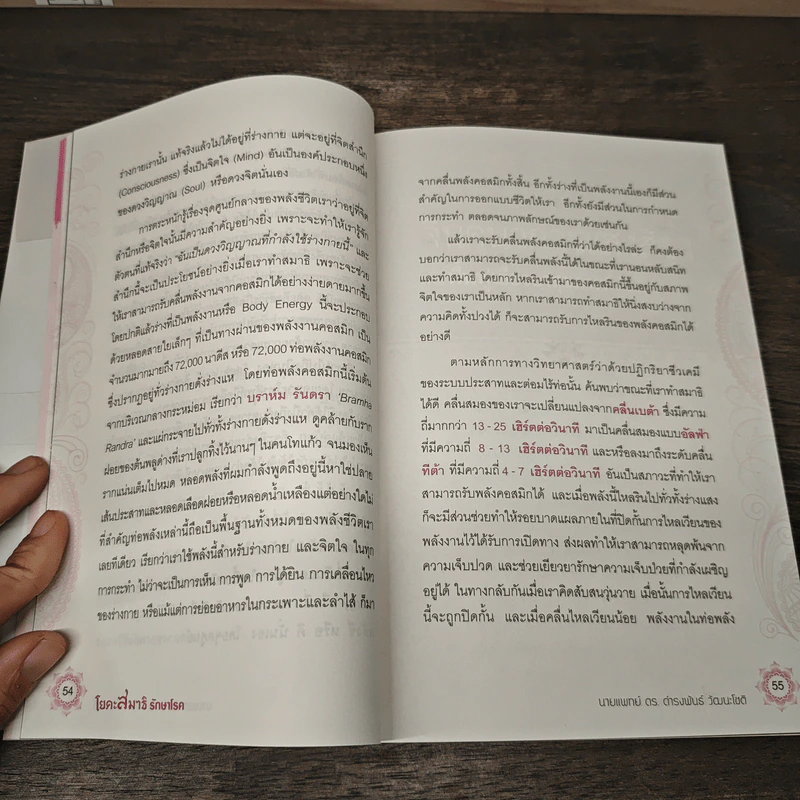 ร่างกายเรานั้น แท้จริงแล้วไม่ได้อยู่ที่ร่างกาย แต่จะอยู่ที่จิตสำนึก
(Consciousness) ซึ่งเป็นจิตใจ (Mind) อันเป็นองค์ประกอบหนึ่ง
ของดวงวิญญาณ (Soul) หรือดวงจิตนั่นเอง
การตระหนักรู้เรื่องจุดศูนย์กลางของพลังชีวิตเราว่าอยู่ที่จิต
สำนึกหรือจิตใจนั้นมีความสำคัญอย่างยิ่ง เพราะจะทำให้เรารู้จัก
ตัวตนที่แท้จริงว่า "อันเป็นดวงวิญญาณที่กำลังใช้ร่างกายนี้" และ
สำนึกนี้จะเป็นประโยชน์อย่างยิ่งเมื่อเราทำสมาธิ เพราะจะช่วย
ให้เราสามารถรับคลื่นพลังงานจากคอสมิกได้อย่างง่ายดายมากขึ้น
โดยปกติแล้วร่างที่เป็นพลังงานหรือ Body Energy นี้จะประกอบ
ด้วยหลอดสายใยเล็กๆ ที่เป็นทางผ่านของพลังงานคอสมิก เป็น
จำนวนมากมายถึง 72,000 นาดีส หรือ 72,000 ท่อพลังงานคอสมิก
ซึ่งปรากฏอยู่ทั่วร่างกายดั่งร่างแห โดยท่อพลังคอสมิกนี้เริ่มต้น
จากบริเวณกลางกระหม่อม เรียกว่า บราห์ม รันดรา 'Bramha
Randra' และแผ่กระจายไปทั่วทั้งร่างกายดั่งร่างแห ดูคล้ายกับราก
ฝอยของต้นพลูด่างที่เราปลูกทิ้งไว้นานๆ ในคนโทแก้ว จนมองเห็น
รากแน่นเต็มไปหมด หลอดพลังที่ผมกำลังพูดถึงอยู่นี้หาใช่ปลาย
เส้นประสาทและหลอดเลือดฝอยหรือหลอดน้ำเหลืองแต่อย่างใดไม่
ที่สำคัญท่อพลังเหล่านี้ถือเป็นพื้นฐานทั้งหมดของพลังชีวิตเรา
เลยทีเดียว เรียกว่าเราใช้พลังนี้สำหรับร่างกาย และจิตใจ ในทุก
การกระทำ ไม่ว่าจะเป็นการเห็น การพูด การได้ยิน การเคลื่อนไหว
ของร่างกาย หรือแม้แต่การย่อยอาหารในกระเพาะและลำไส้ ก็มา
54
โยคะสมาธิ รักษาโรค
จากคลื่นพลังคอสมิกทั้งสิ้น อีกทั้งร่างที่เป็นพลังงานนี้เองก็มีส่วน
สำคัญในการออกแบบชีวิตให้เรา อีกทั้งยังมีส่วนในการกำหนด
การกระทำ ตลอดจนภาพลักษณ์ของเราด้วยเช่นกัน
แล้วเราจะรับคลื่นพลังคอสมิกที่ว่าได้อย่างไรล่ะ ก็คงต้อง
บอกว่าเราสามารถจะรับคลื่นพลังนี้ได้ในขณะที่เรานอนหลับสนิท
และทำสมาธิ โดยการไหลรินเข้ามาของคอสมิกนี้ขึ้นอยู่กับสภาพ
จิตใจของเราเป็นหลัก หากเราสามารถทำสมาธิให้นิ่งสงบว่างจาก
ความคิดทั้งปวงได้ ก็จะสามารถรับการไหลรินของพลังคอสมิกได้
อย่างดี
ตามหลักการทางวิทยาศาสตร์ว่าด้วยปฏิกริยาชีวเคมี
ของระบบประสาทและต่อมไร้ท่อนั้น ค้นพบว่าขณะที่เราทำสมาธิ
ได้ดี คลื่นสมองของเราจะเปลี่ยนแปลงจากคลื่นเบต้า ซึ่งมีความ
ถี่มากกว่า 13 - 25 เฮิร์ตต่อวินาที มาเป็นคลื่นสมองแบบอัลฟ่า
ที่มีความถี่ 8 - 13 เฮิร์ตต่อวินาที และหรือลงมาถึงระดับคลื่น
ทีต้า ที่มีความถี่ 4 - 7 เฮิร์ตต่อวินาที อันเป็นสภาวะที่ทำให้เรา
สามารถรับพลังคอสมิกได้ และเมื่อพลังนี้ไหลรินไปทั่วทั้งร่างแสง
ก็จะมีส่วนช่วยทำให้รอยบาดแผลภายในที่ปิดกั้นการไหลเวียนของ
พลังงานไว้ได้รับการเปิดทาง ส่งผลทำให้เราสามารถหลุดพ้นจาก
ความเจ็บปวด และช่วยเยียวยารักษาความเจ็บป่วยที่กำลังเผชิญ
อยู่ได้ ในทางกลับกันเมื่อเราคิดสับสนวุ่นวาย เมื่อนั้นการไหลเวียน
นี้จะถูกปิดกั้น และเมื่อคลื่นไหลเวียนน้อย พลังงานในท่อพลัง
นายแพทย์ ดร. ดำรงพันธ์ วัฒนะโชติ
55